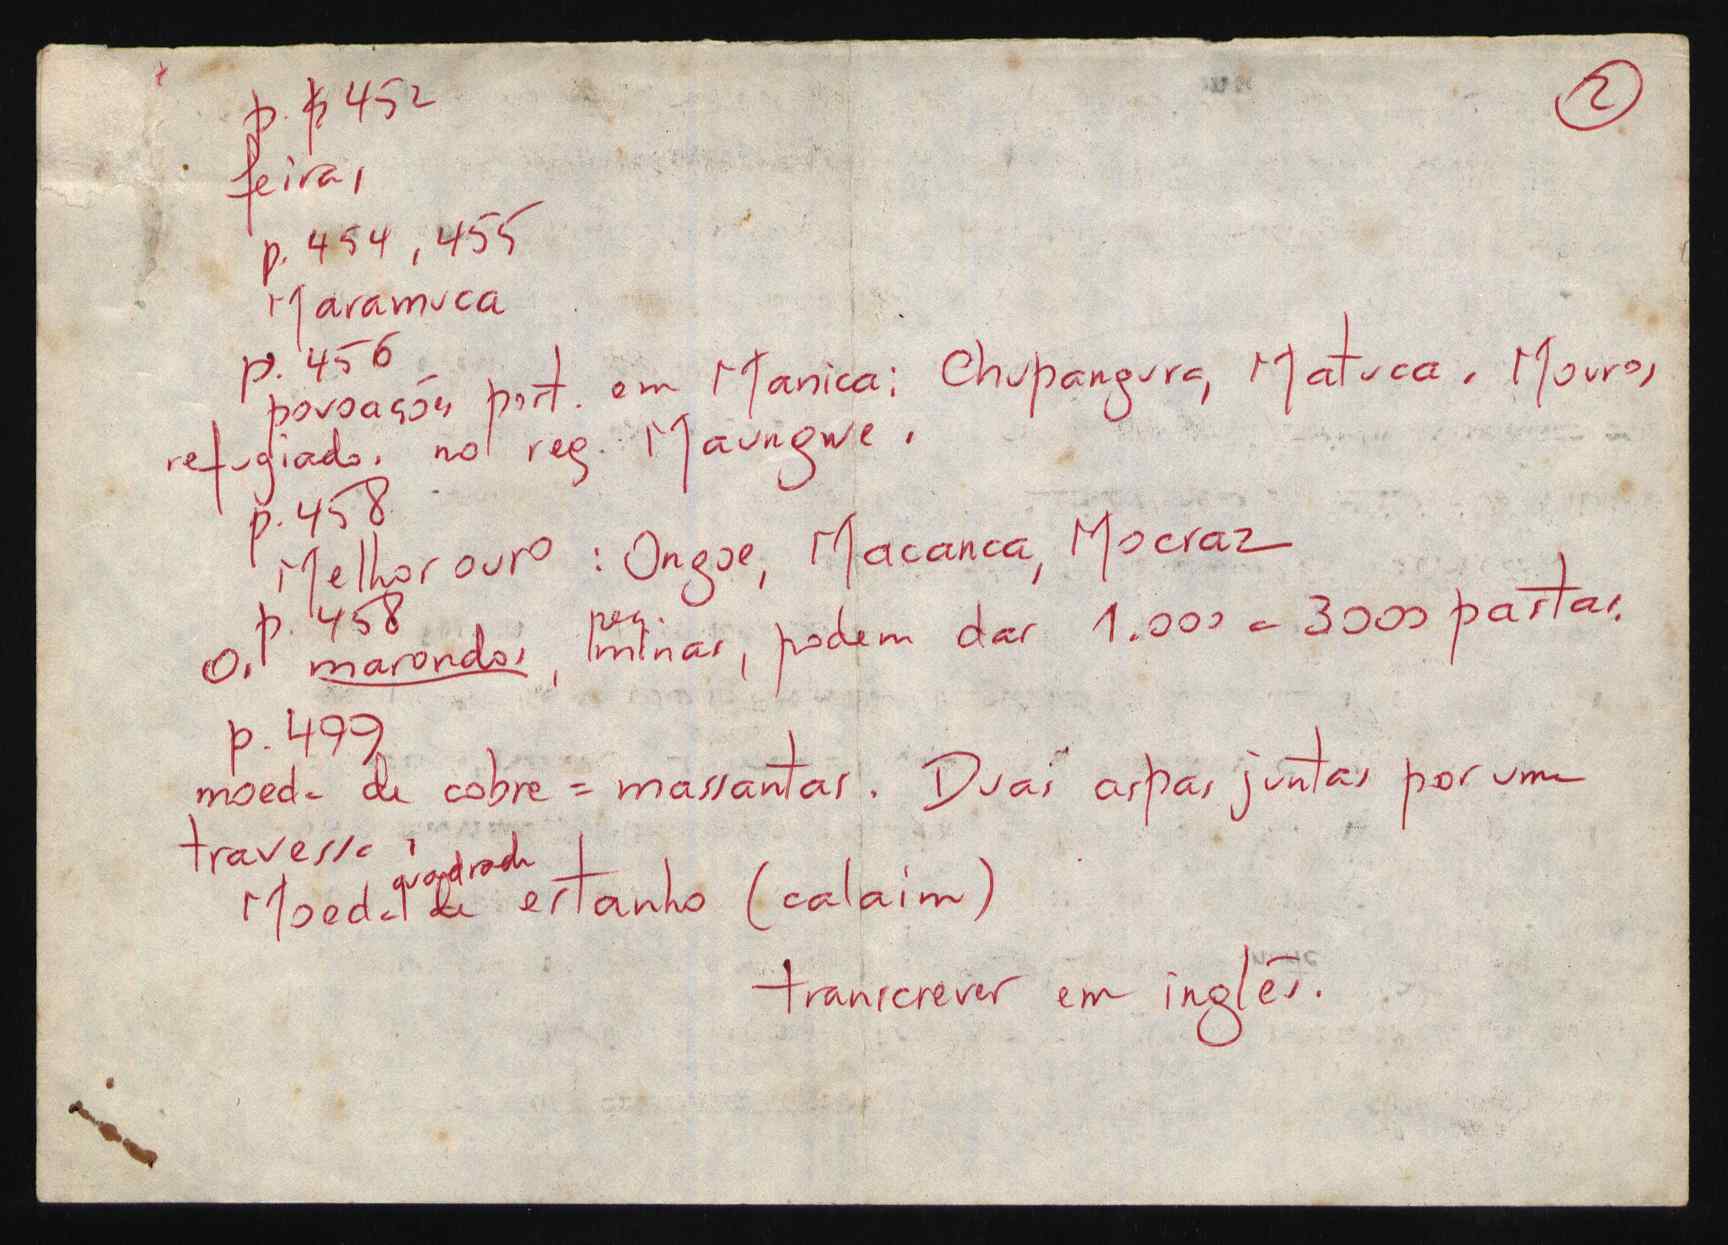 2
p. p 452
feiras
p. 454, 455
Maramuca
p. 456
povoações port. em Manica: Chupangura, Matuca. Mouros
refugiados no reg. Maungwe.
p. 458
Melhor ouro: Ongoe, Macanca, Mocraz
p. 458
Os marondos, peq. minas, podem dar 1.000 a 3000 pastas.
p. 499
moeda de cobre = massantas. Duas aspas juntas por uma
travessa;
Moeda quadrada de estanho (calaim)
transcrever em inglês.